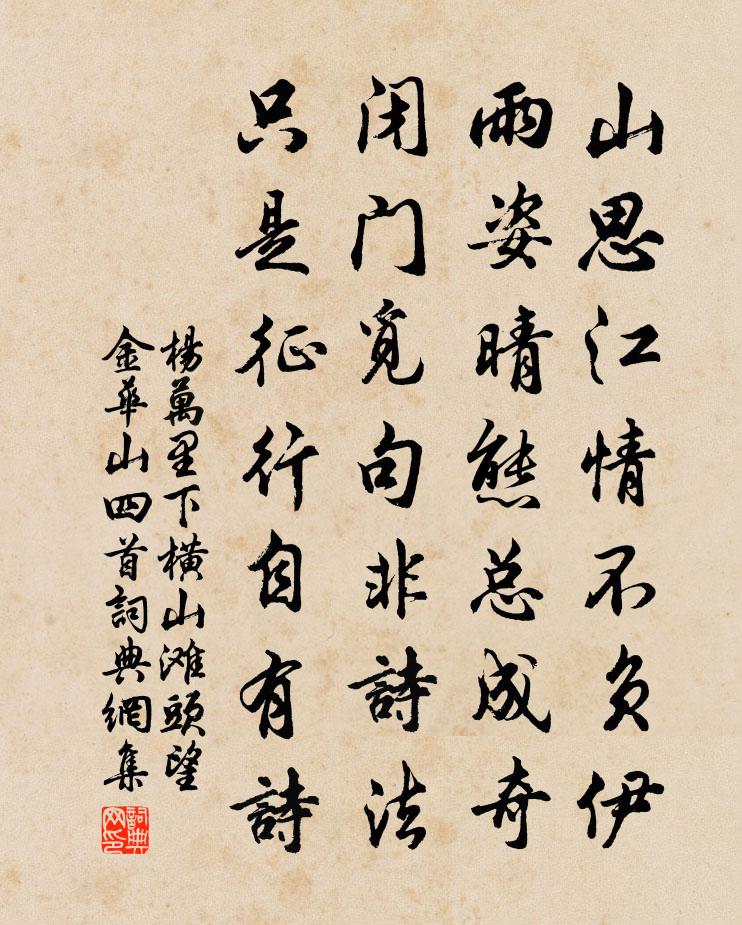 山思江情不负伊
雨姿晴態总成奇
闭门觅句非詩法
只是征行自有詩
楊萬里下横山滩頭望
金華山四首詞典網集
詞典
网印